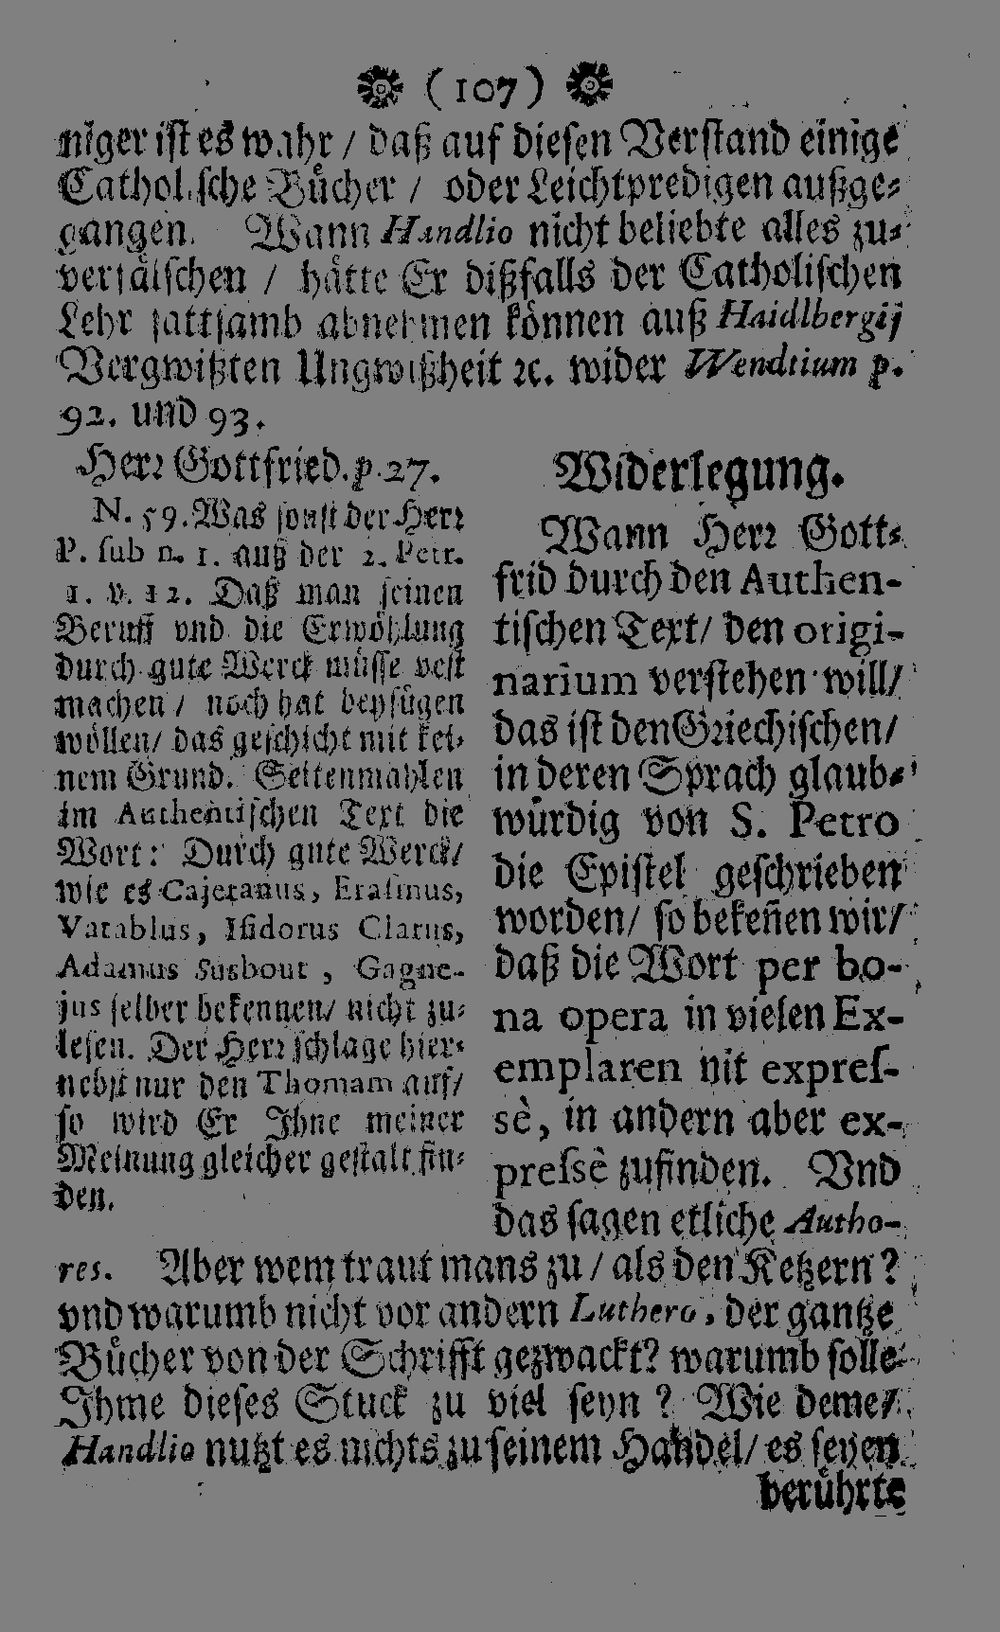 (107)
niger ist es wahr / daß auf diesen Verstand einige
Catholische Bücher / oder Leichtpredigen außge-
gangen. Wann Handlio nicht beliebte alles zu-
verfälschen / hätte Er dißfalls der Catholischen
Lehr sattsamb abnehmen können auß Haidlbergij
Vergwißten Ungwißheit ꝛc. wider Wendtium p.
92. und 93.
Herꝛ Gottfried. p. 27.
N. 59. Was sonst der Herꝛ
P. sub n. 1. auß der 2. Petr.
1. v. 12. Daß man seinen
Beruff vnd die Erwöhlung
durch gute Werck müsse vest
machen / noch hat beyfügen
wöllen / das geschicht mit kei-
nem Grund. Seitenmahlen
im Authentischen Text die
Wort: Durch gute Werck /
wie es Cajetanus, Erasmus,
Vatablus, Isidorus Clarus,
Adamus Susbout, Gagne-
jus selber bekennen / nicht zu-
lesen. Der Herꝛ schlage hier-
nebst nur den Thomam auf /
so wird Er Ihne meiner
Meinung gleicher gestalt fin-
den.
Widerlegung.
Wann Herꝛ Gott-
frid durch den Authen-
tischen Text / den origi-
narium verstehen will /
das ist den Gꝛiechischen /
in deren Sprach glaub-
würdig von S. Petro
die Epistel geschrieben
worden / so bekeñen wir /
daß die Wort per bo-
na opera in vielen Ex-
emplaren nit expres-
sè, in andern aber ex-
pressè zufinden. Vnd
das sagen etliche Autho-
res. Aber wem traut mans zu / als den Ketzern?
vnd warumb nicht vor andern Luthero, der gantze
Bücher von der Schrifft gezwackt? warumb solle
Ihme dieses Stuck zu viel seyn? Wie deme /
Handlio nutzt es nichts zu seinem Handel / es seyen
berührte